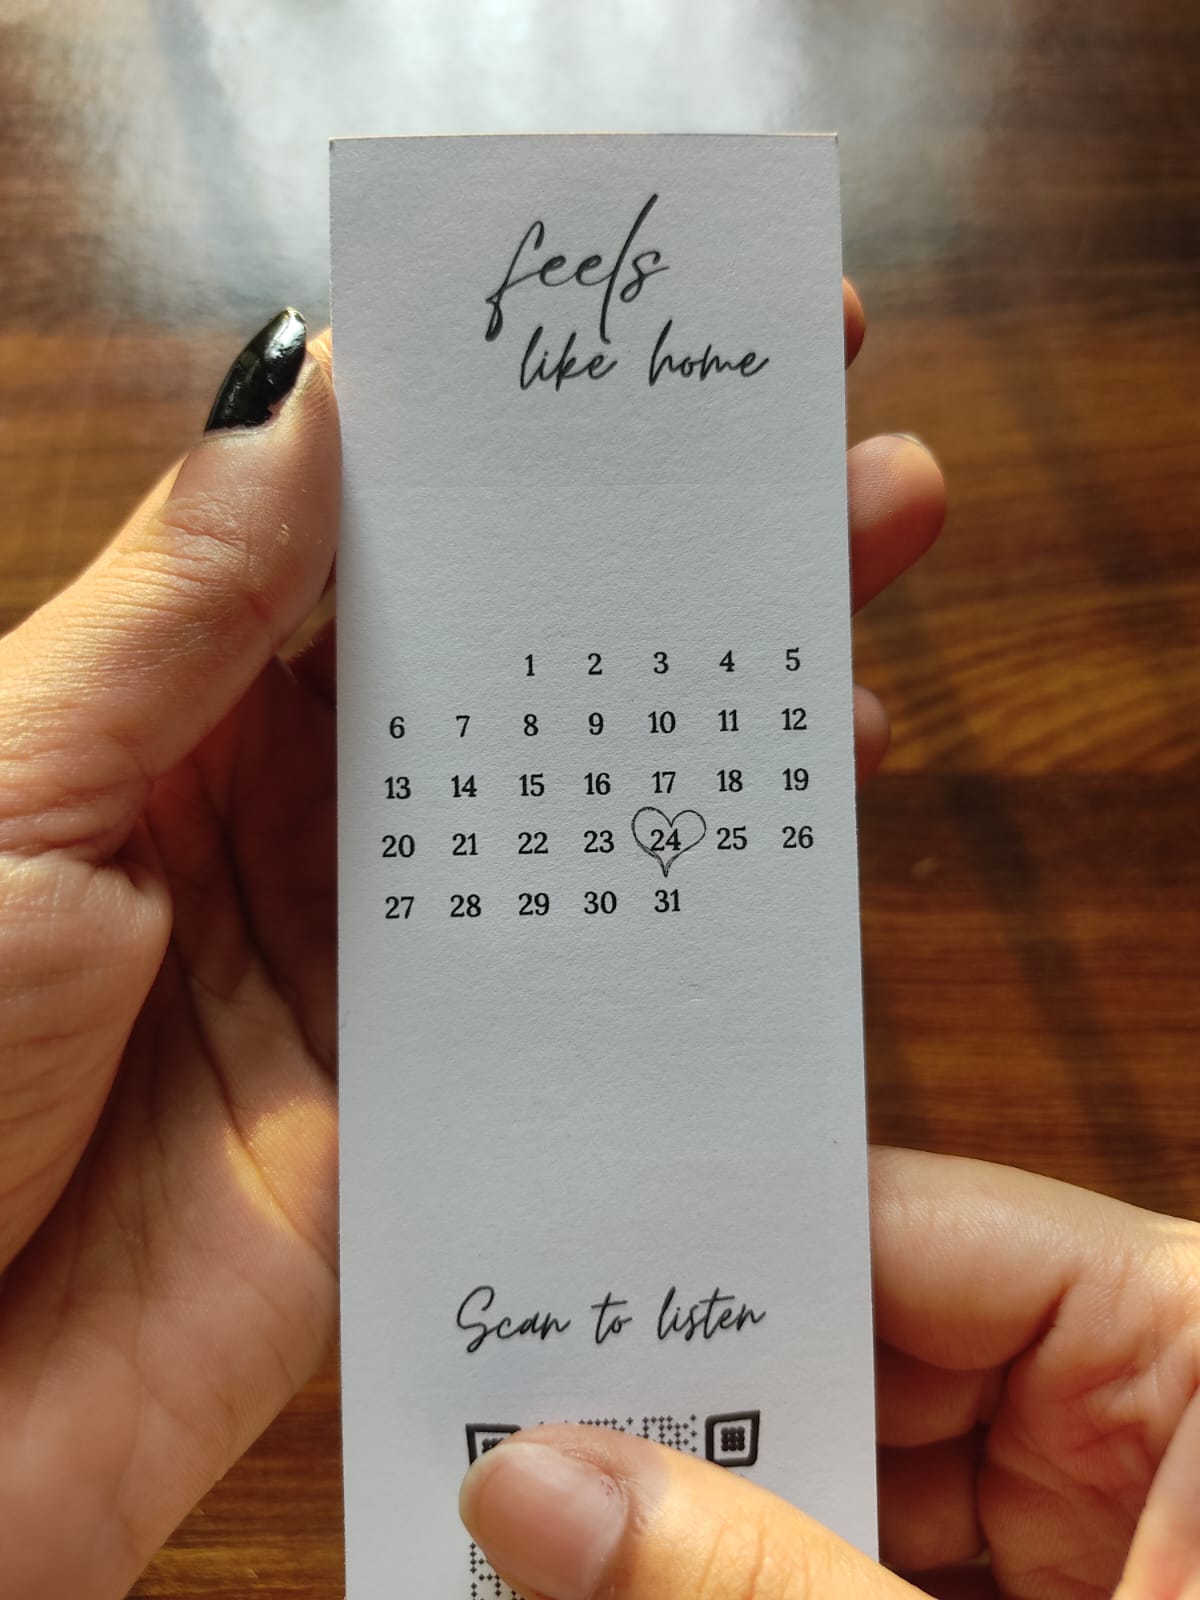 feels
like home
1 2 3 4 5
6 7 8 9 10 11 12
13 14 15 16 17 18 19
20 21 22 23 24 25 26
27 28 29 30 31
Scan to listen